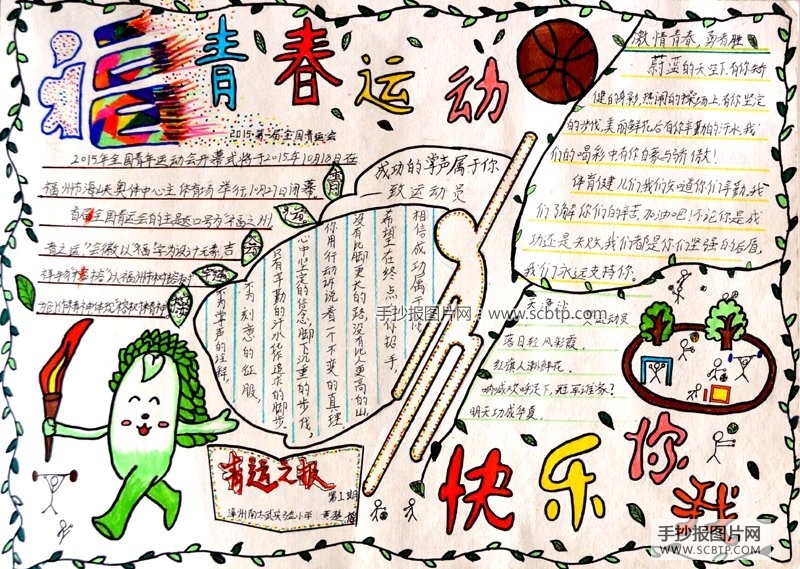 福
青春运动
2015·第一届全国青运会
2015年全国青年运动会开幕式将于2015年10月18日在
福州市海峡奥体中心主体育场举行10月27日闭幕。
首届全国青运会的主题口号为"福之州
青之运"会徽以"福"字为设计元素,吉
成功的掌声属于你
—致运动员
相信成功属于
希望在终点
没有比脚更长的路,没有比人更高的山,
你用行动诉说着一个不变的真理
心中坚定的信念,脚下沉重的步伐,
只有辛勤的汗水化作追求的脚步,
刻意的征服,
为掌声的诠释,
激情青春,勇者胜
蔚蓝的天空下有你矫
健的身影,热闹的操场上有你坚定
的步伐,美丽鲜花后有你辛勤的汗水,我
们的喝彩中有你自豪与骄傲!
体育健儿们我们知道你们辛勤,我
们了解你们的辛苦,加油吧!不论你是成
功还是失败,我们都是你们坚强的后盾,
我们永远支持你。
天净沙
落日轻风彩霞,
红旗人潮鲜花。
呐喊欢呼走下,冠军谁家?
明天功成华夏。
手抄报图片网:www.scbtp.com
青运之报
第1期
快乐你我
手抄报图片网
WWW.SCBTP.COM